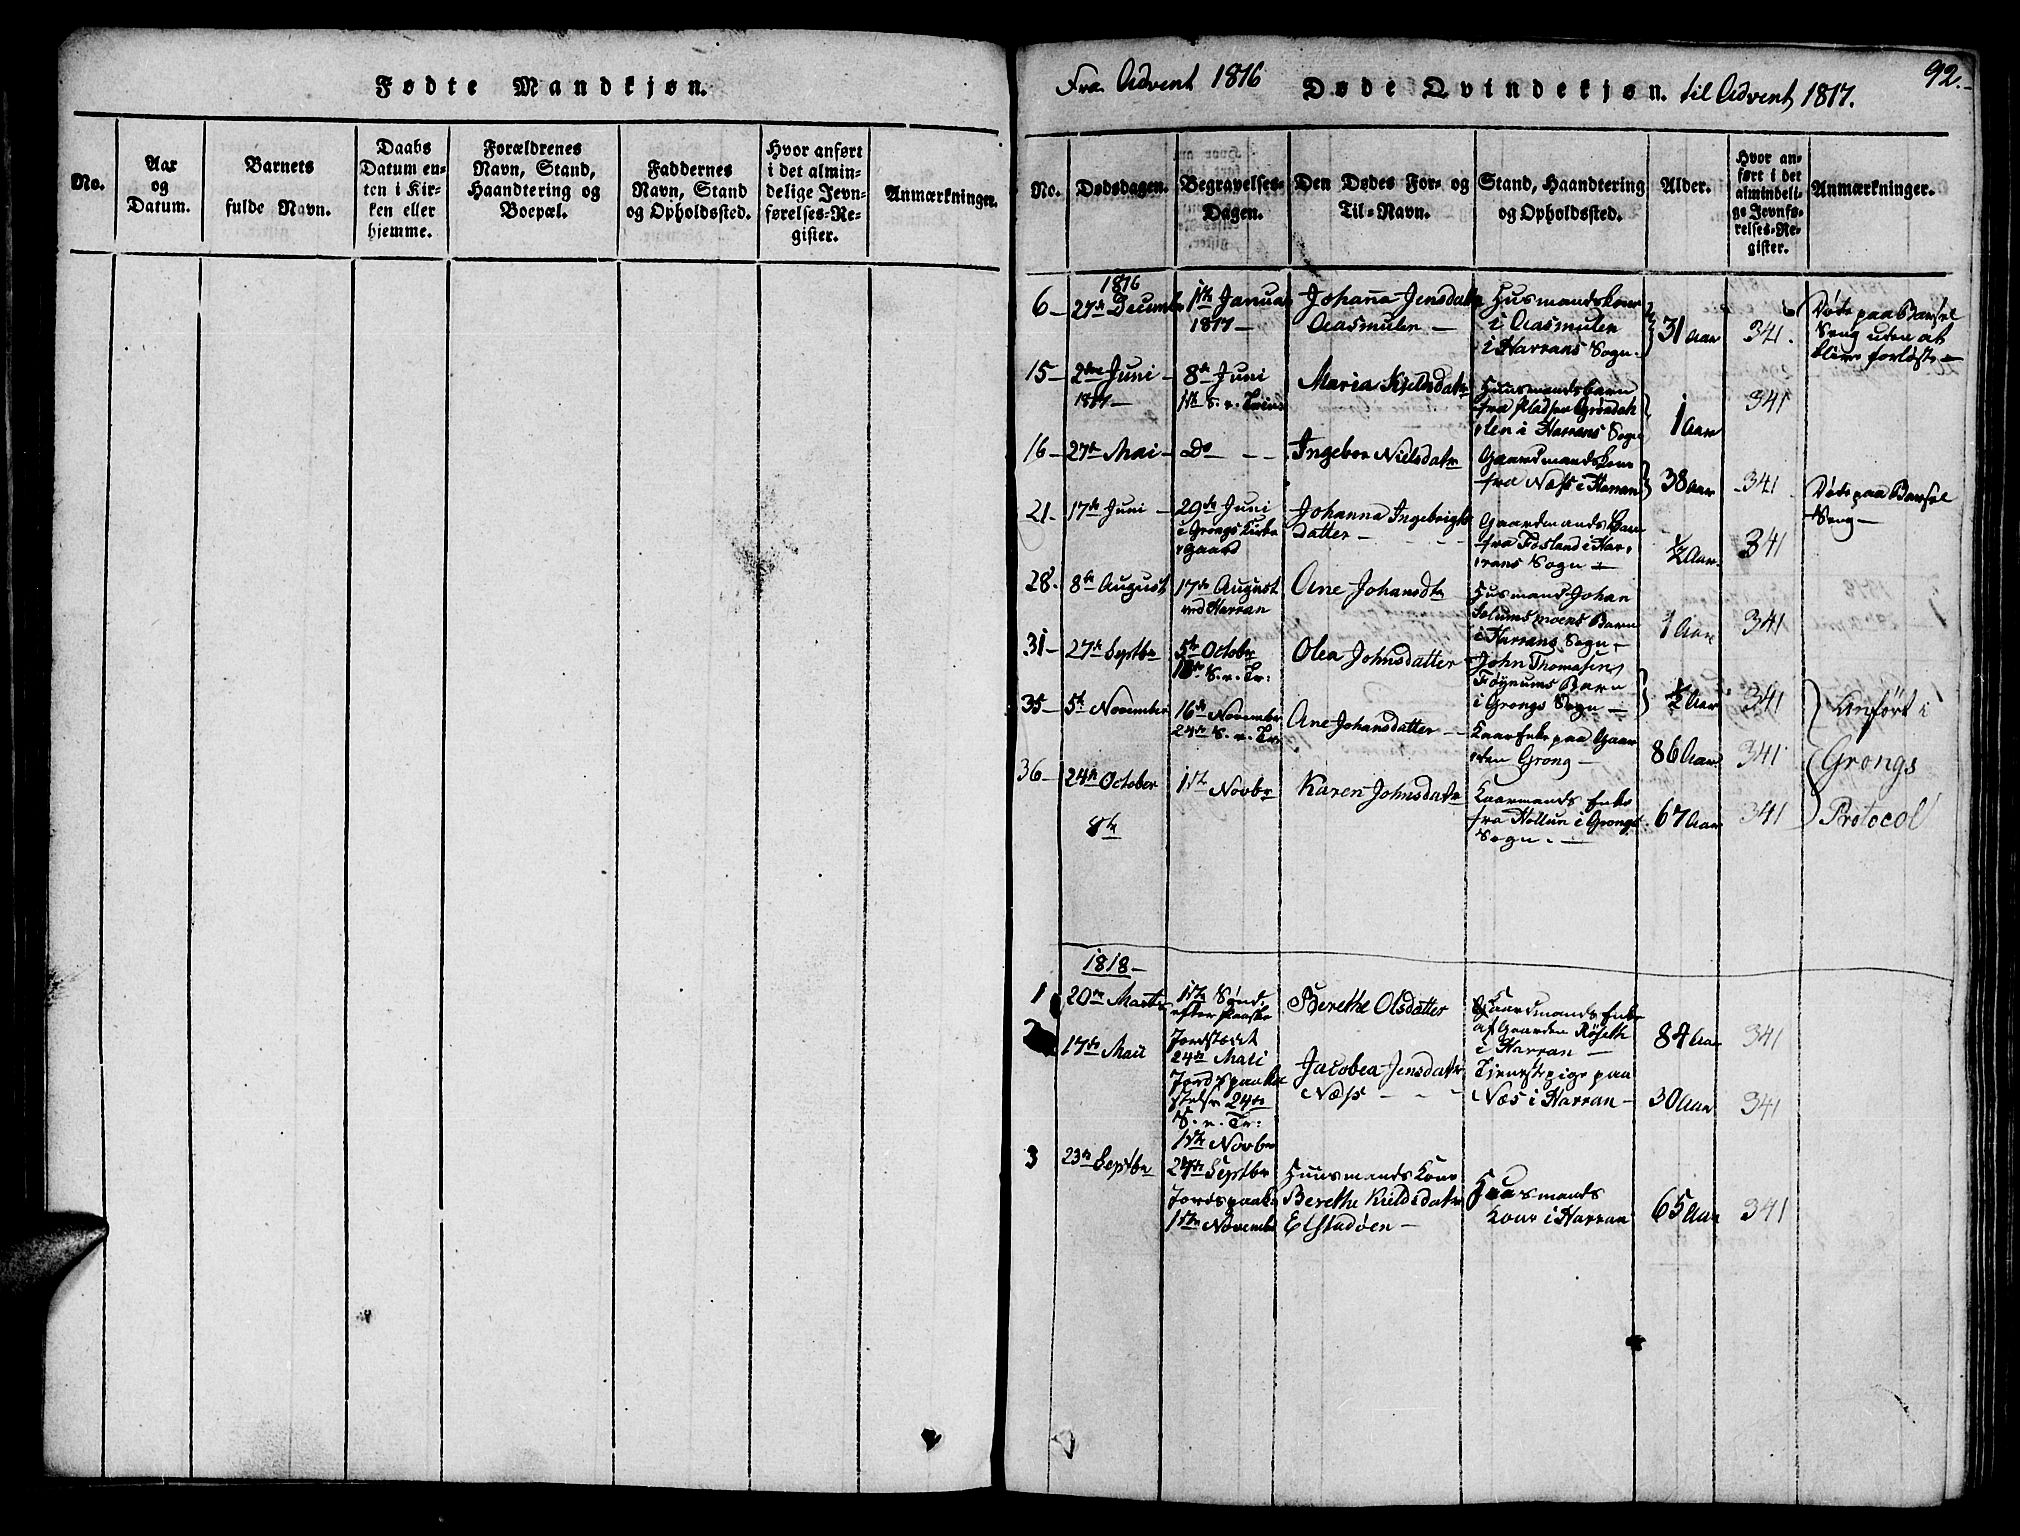 Fødte Mandkjøn.
No.
Aar
og
Datum.
Barnets
fulde Navn.
Daabs
Datum en-
ten i Kir-
ken eller
hjemme.
Forældrenes
Navn, Stand,
Haandtering og
Boepæl.
Faddernes
Navn, Stand
og Opholdssted.
Hvor anført
i det almin-
delige Jevn-
førelses-Re-
gister.
Anmærkninger.
Fra Advent 1816 Døde Qvindekjøn. til Advent 1817.
92.
No.
Dødsdagen.
Begravelses-
Dagen.
Den Dødes For- og
Til-Navn.
Stand, Haandtering
og Opholdssted.
Alder.
Hvor an-
ført i det
almindeli-
ge Jevnfø-
relses-Re-
gister.
Anmærkninger.
1816
6 –
27de Decembr
1ste Januar
1817 –
Johanna Jensdatr
Aasmulen –
Husmandskone
i Aasmulen
i Harrans Sogn.
31 Aar
341.
Døde paa Barsel
Seng uden at
blive forløst –
15 –
2den Juni –
1817 –
8de Juni
1ste S. e. Trin
Maria Kjelsdatr
Huusmandsbarn
fra Pladsen Grøndah
len i Harrans Sogn
1 Aar
341
16 –
27de Mai –
Do – –
Ingebor Nielsdatr
Gaardmandskone
fra Næss i Harran
38 Aar
341
Døde paa Barsel
Seng –
21 –
17de Juni –
29de Juni
i Grongs Kirke
gaard
Johanna Ingebrigts
datter –
Gaardmands Barn
fra Fosland i Har
rans Sogn –
½ Aar
341
28.
8de August
17de August
ved Harran
Ane Johansdtr
Husmand Johan
Solumsmoens Barn
i Harrans Sogn –
1 Aar
341
31 –
27de Septbr
5te Octobr
18de S. e. Tr:
Olea Johnsdatter
John Thomasen
Føynums Barn
i Grongs Sogn –
½ Aar
341
35 –
5te November
16de Novembr
24de S. e. Tr.
Ane Johansdatter –
Kaarenke paa Gaar
den Grong –
86 Aar
341
Anført i
Grongs
Protocol
36 –
24de October
8de
1ste Novbr
Karen Johnsdatr
Kaarmands Enke
fra Hollun i Grongs
Sogn. –
67 Aar
341
1818 –
1
20de Marti
1ste Sønd.
efter Paaske
Berethe Olsdatter
Gaardmands Enke
af Gaarden Røseth
i Harran –
84 Aar
341
17de Mai
Jordfæstet
24de Mai
Jordspaaka
stelse 24de
S. e. Tr:
1ste Novbr
Jacobea Jensdatr
Næss – – –
Tjenestepige paa
Næs i Harran –
30 Aar
341
3
23de Septbr
27de Septbr
Jordspaak.
1ste Novembr
Huusmands Kone
Berethe Kieldsdatr
Elstadøen –
Huusmands
Kone i Harran
65 Aar
341